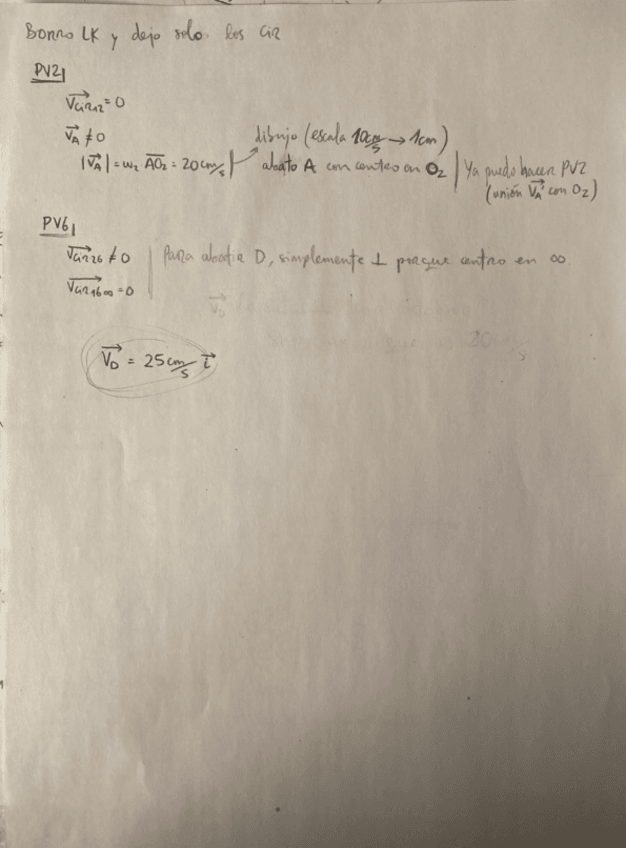 Borro LK y dejo solo los CIR
PV2
V⃗CIR12 = 0
V⃗A ≠ 0
|V⃗A| = ω2 A̅O̅2̅ = 20 cm/s
dibujo (escala 10 cm/s → 1cm)
abato A con centro en O2
Ya puedo hacer PV2
(unión V⃗A' con O2)
PV6
V⃗CIR26 ≠ 0
V⃗CIR16∞ = 0
Para abatir D, simplemente ⊥ porque centro en ∞
V⃗D = 25 cm/s i⃗